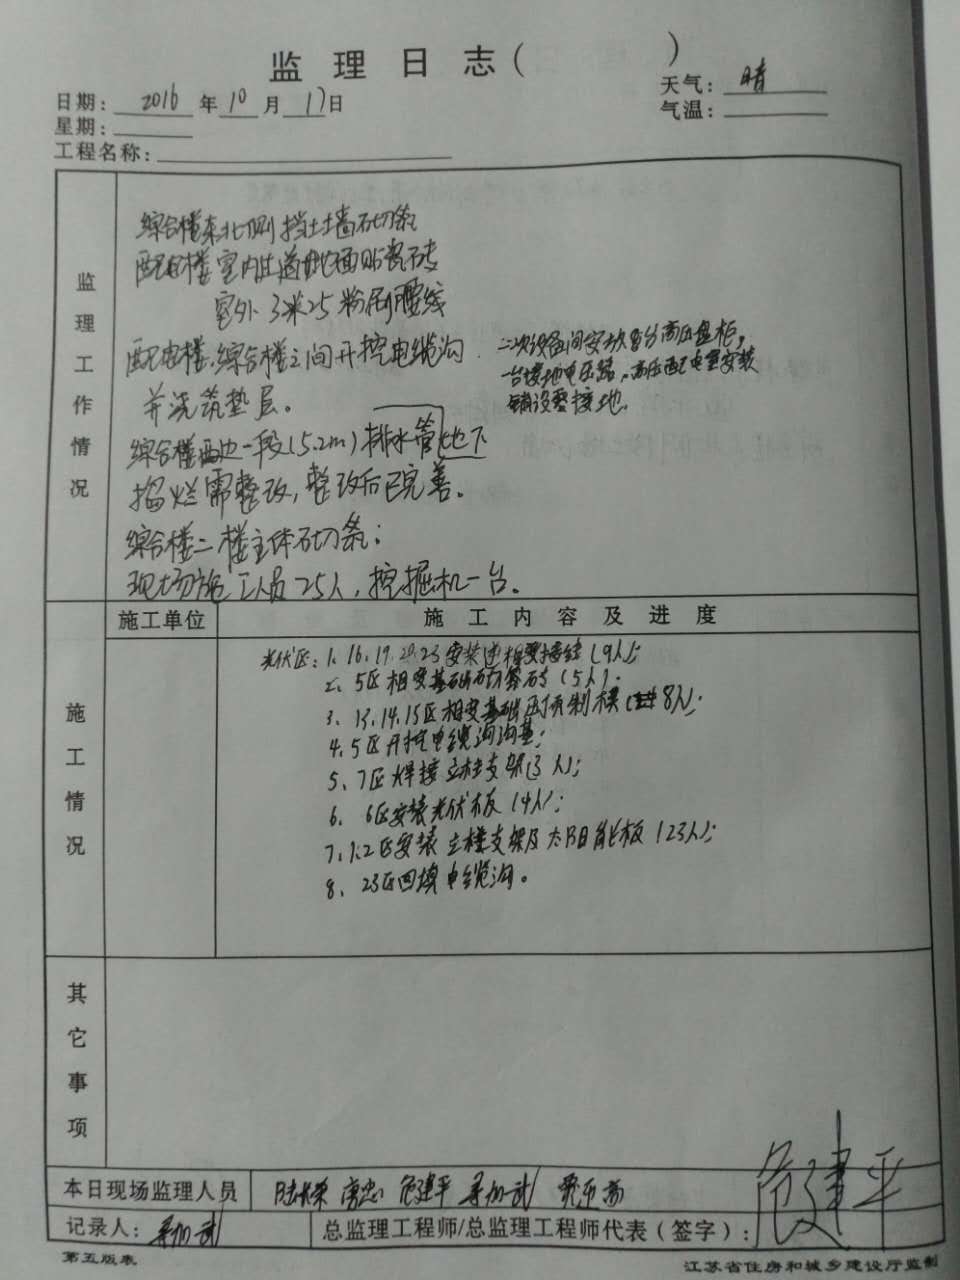 监理日志( )
日期: 2016 年 10 月 17 日
天气: 晴
星期:
气温:
工程名称:
监理工作情况
综合楼东北侧挡土墙砌条
配电楼室内过道地面贴瓷砖
室外 3米25 粉刷腰线
配电楼、综合楼之间开挖电缆沟
并浇筑垫层。
二次设备间安放 台高压盘柜,
一台接地 ,高压配电室安装
铺设 接地.
综合楼西边一段(5.2m)排水管地下
塌烂需整改,整改后已完善。
综合楼二楼主体砌条;
现场施工人员25人,挖掘机一台。
施工单位
施工内容及进度
施工情况
光伏区: 1、16、19、23 安装 接线(9人);
2、5区相变基础砌 砖(5人).
3、13、14、15区相变基础 制模( 8人);
4、5区开挖电缆沟沟基;
5、7区焊接立柱支架(3人);
6、6区安装光伏板(4人);
7、1、2区安装立楼支架及太阳能板(23人);
8、23区回填电缆沟。
其它事项
本日现场监理人员 忠 危建平
记录人:
总监理工程师/总监理工程师代表(签字): 危建平
第五版表
江苏省住房和城乡建设厅监制